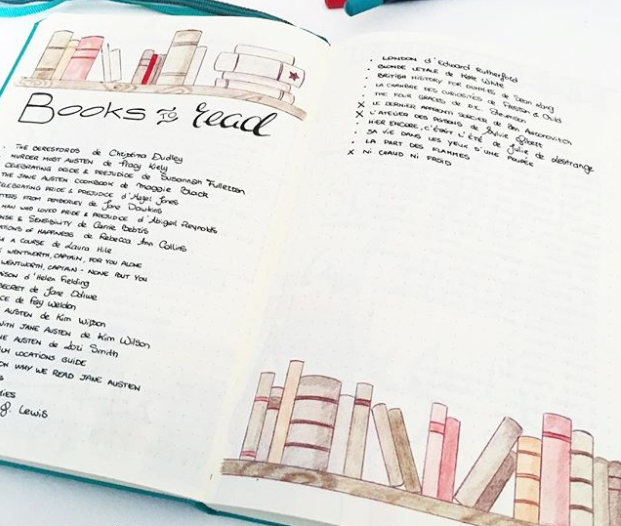 Books to read
THE BERESFORDS de Christina Dudley
MURDER MOST AUSTEN de Tracy Kiely
CELEBRATING PRIDE & PREJUDICE de Susannah Fullerton
THE JANE AUSTEN COOKBOOK de Maggie Black
CELEBRATING PRIDE & PREJUDICE d'Hazel Jones
TTERS FROM PEMBERLEY de Jane Dawkins
MAN WHO LOVED PRIDE & PREJUDICE d'Abigail Reynolds
NSE & SENSIBILITY de Carrie Bebris
ATIONS OF HAPPINESS de Rebecca Ann Collins
A COURSE de Laura Hile
WENTWORTH, CAPTAIN, FOR YOU ALONE
WENTWORTH, CAPTAIN - NONE BUT YOU
d'Helen Fielding
SECRET de Jane Odiwe
CE de Fay Weldon
AUSTEN de Kim Wilson
WITH JANE AUSTEN de Kim Wilson
NE AUSTEN de Lori Smith
LOCATIONS GUIDE
ON WHY WE READ JANE AUSTEN
Lewis
LONDON d'Edward Rutherfurd
BLONDE LÉTALE de Kate White
BRITISH HISTORY FOR DUMMIES de Sean Lang
LA CHAMBRE DES CURIOSITÉS de Preston & Child
THE FOUR GRACES de D.E. Stevenson
X LE DERNIER APPRENTI SORCIER de Ben Aaronovitch
X L'ATELIER DES POISONS de Sylvie Gibert
HIER ENCORE, C'ÉTAIT L'ÉTÉ de Julie de Lestrange
SA VIE DANS LES YEUX D'UNE POUPÉE
LA PART DES FLAMMES
X NI CHAUD NI FROID